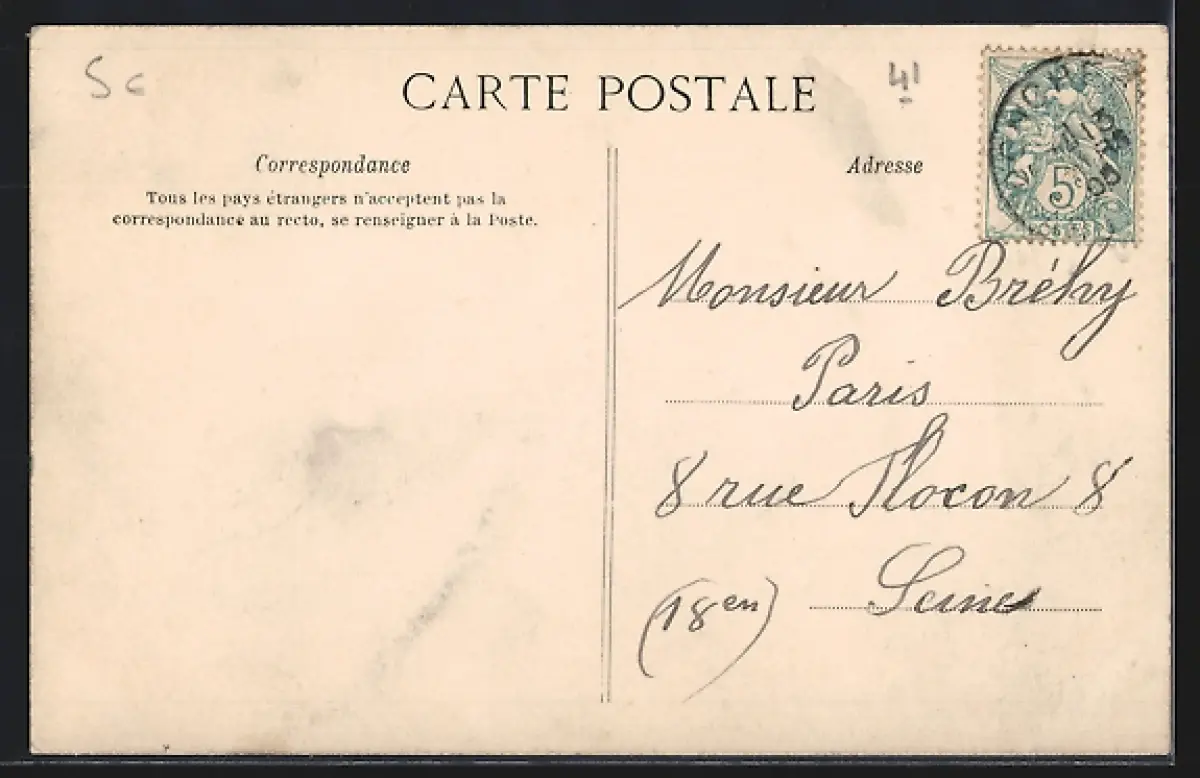 5c
CARTE POSTALE
41
Correspondance
Tous les pays étrangers n'acceptent pas la
correspondance au recto, se renseigner à la Poste.
Adresse
5c
Monsieur Bréhy
Paris
8 rue Flocon 8
Seine
(18en)